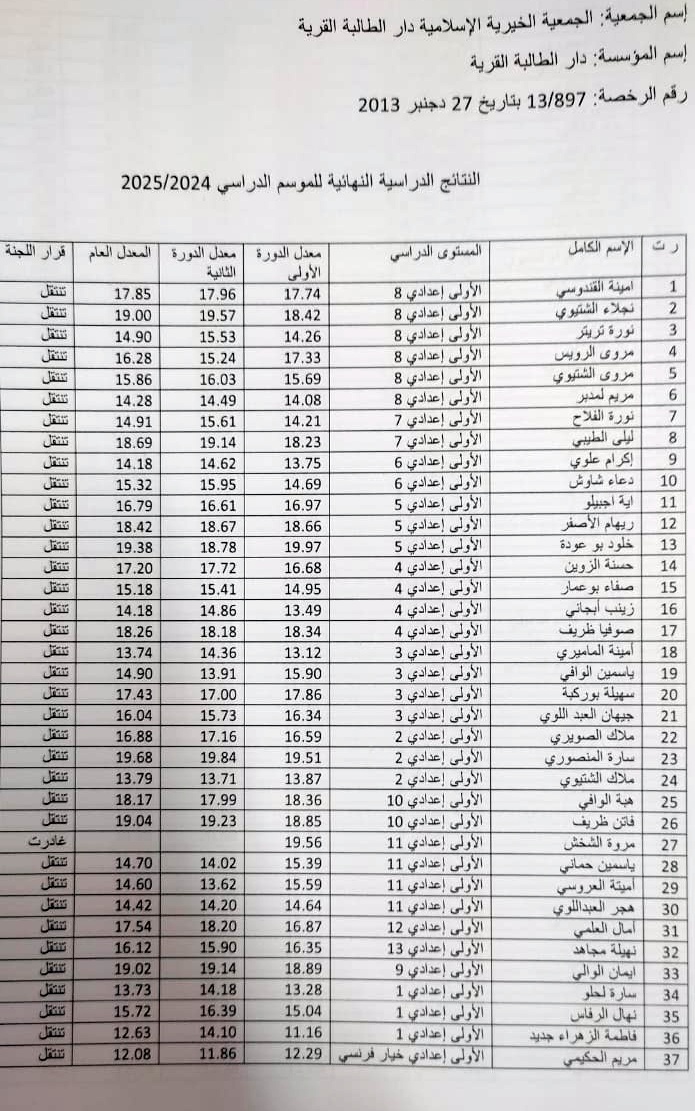 إسم الجمعية: الجمعية الخيرية الإسلامية دار الطالبة القرية
إسم المؤسسة: دار الطالبة القرية
رقم الرخصة: 13/897 بتاريخ 27 دجنبر 2013
النتائج الدراسية النهائية للموسم الدراسي 2025/2024
ر ت الإسم الكامل المستوى الدراسي معدل الدورة الأولى معدل الدورة الثانية المعدل العام قرار اللجنة
1 امينة القندوسي الأولى إعدادي 8 17.74 17.96 17.85 تنتقل
2 نجلاء الشتيوي الأولى إعدادي 8 18.42 19.57 19.00 تنتقل
3 نورة تريتر الأولى إعدادي 8 14.26 15.53 14.90 تنتقل
4 مروى الرويس الأولى إعدادي 8 17.33 15.24 16.28 تنتقل
5 مروى الشتيوي الأولى إعدادي 8 15.69 16.03 15.86 تنتقل
6 مريم لمدبر الأولى إعدادي 8 14.08 14.49 14.28 تنتقل
7 نورة الفلاح الأولى إعدادي 7 14.21 15.61 14.91 تنتقل
8 ليلى الطيبي الأولى إعدادي 7 18.23 19.14 18.69 تنتقل
9 إكرام علوي الأولى إعدادي 6 13.75 14.62 14.18 تنتقل
10 دعاء شاوش الأولى إعدادي 6 14.69 15.95 15.32 تنتقل
11 اية اجبيلو الأولى إعدادي 5 16.97 16.61 16.79 تنتقل
12 ريهام الأصفر الأولى إعدادي 5 18.66 18.67 18.42 تنتقل
13 خلود بو عودة الأولى إعدادي 5 19.97 18.78 19.38 تنتقل
14 حسنة الزوين الأولى إعدادي 4 16.68 17.72 17.20 تنتقل
15 صفاء بوعمار الأولى إعدادي 4 14.95 15.41 15.18 تنتقل
16 زينب أبجاتي الأولى إعدادي 4 13.49 14.86 14.18 تنتقل
17 صوفيا ظريف الأولى إعدادي 4 18.34 18.18 18.26 تنتقل
18 أمينة الماميري الأولى إعدادي 3 13.12 14.36 13.74 تنتقل
19 ياسمين الوافي الأولى إعدادي 3 15.90 13.91 14.90 تنتقل
20 سهيلة بوركبة الأولى إعدادي 3 17.86 17.00 17.43 تنتقل
21 جيهان العبد اللوي الأولى إعدادي 3 16.34 15.73 16.04 تنتقل
22 ملاك الصويري الأولى إعدادي 2 16.59 17.16 16.88 تنتقل
23 سارة المنصوري الأولى إعدادي 2 19.51 19.84 19.68 تنتقل
24 ملاك الشتيوي الأولى إعدادي 2 13.87 13.71 13.79 تنتقل
25 هبة الوافي الأولى إعدادي 10 18.36 17.99 18.17 تنتقل
26 فاتن ظريف الأولى إعدادي 10 18.85 19.23 19.04 تنتقل
27 مروة الشخش الأولى إعدادي 11 19.56 غادرت
28 ياسمين حماني الأولى إعدادي 11 15.39 14.02 14.70 تنتقل
29 أميتة العروسي الأولى إعدادي 11 15.59 13.62 14.60 تنتقل
30 هجر العبداللوي الأولى إعدادي 11 14.64 14.20 14.42 تنتقل
31 أمال العلمي الأولى إعدادي 12 16.87 18.20 17.54 تنتقل
32 نهيلة مجاهد الأولى إعدادي 13 16.35 15.90 16.12 تنتقل
33 ايمان الوالي الأولى إعدادي 9 18.89 19.14 19.02 تنتقل
34 سارة لحلو الأولى إعدادي 1 13.28 14.18 13.73 تنتقل
35 نهال الرفاس الأولى إعدادي 1 15.04 16.39 15.72 تنتقل
36 فاطمة الزهراء جديد الأولى إعدادي 1 11.16 14.10 12.63 تنتقل
37 مريم الحكيمي الأولى إعدادي خيار فرنسي 12.29 11.86 12.08 تنتقل